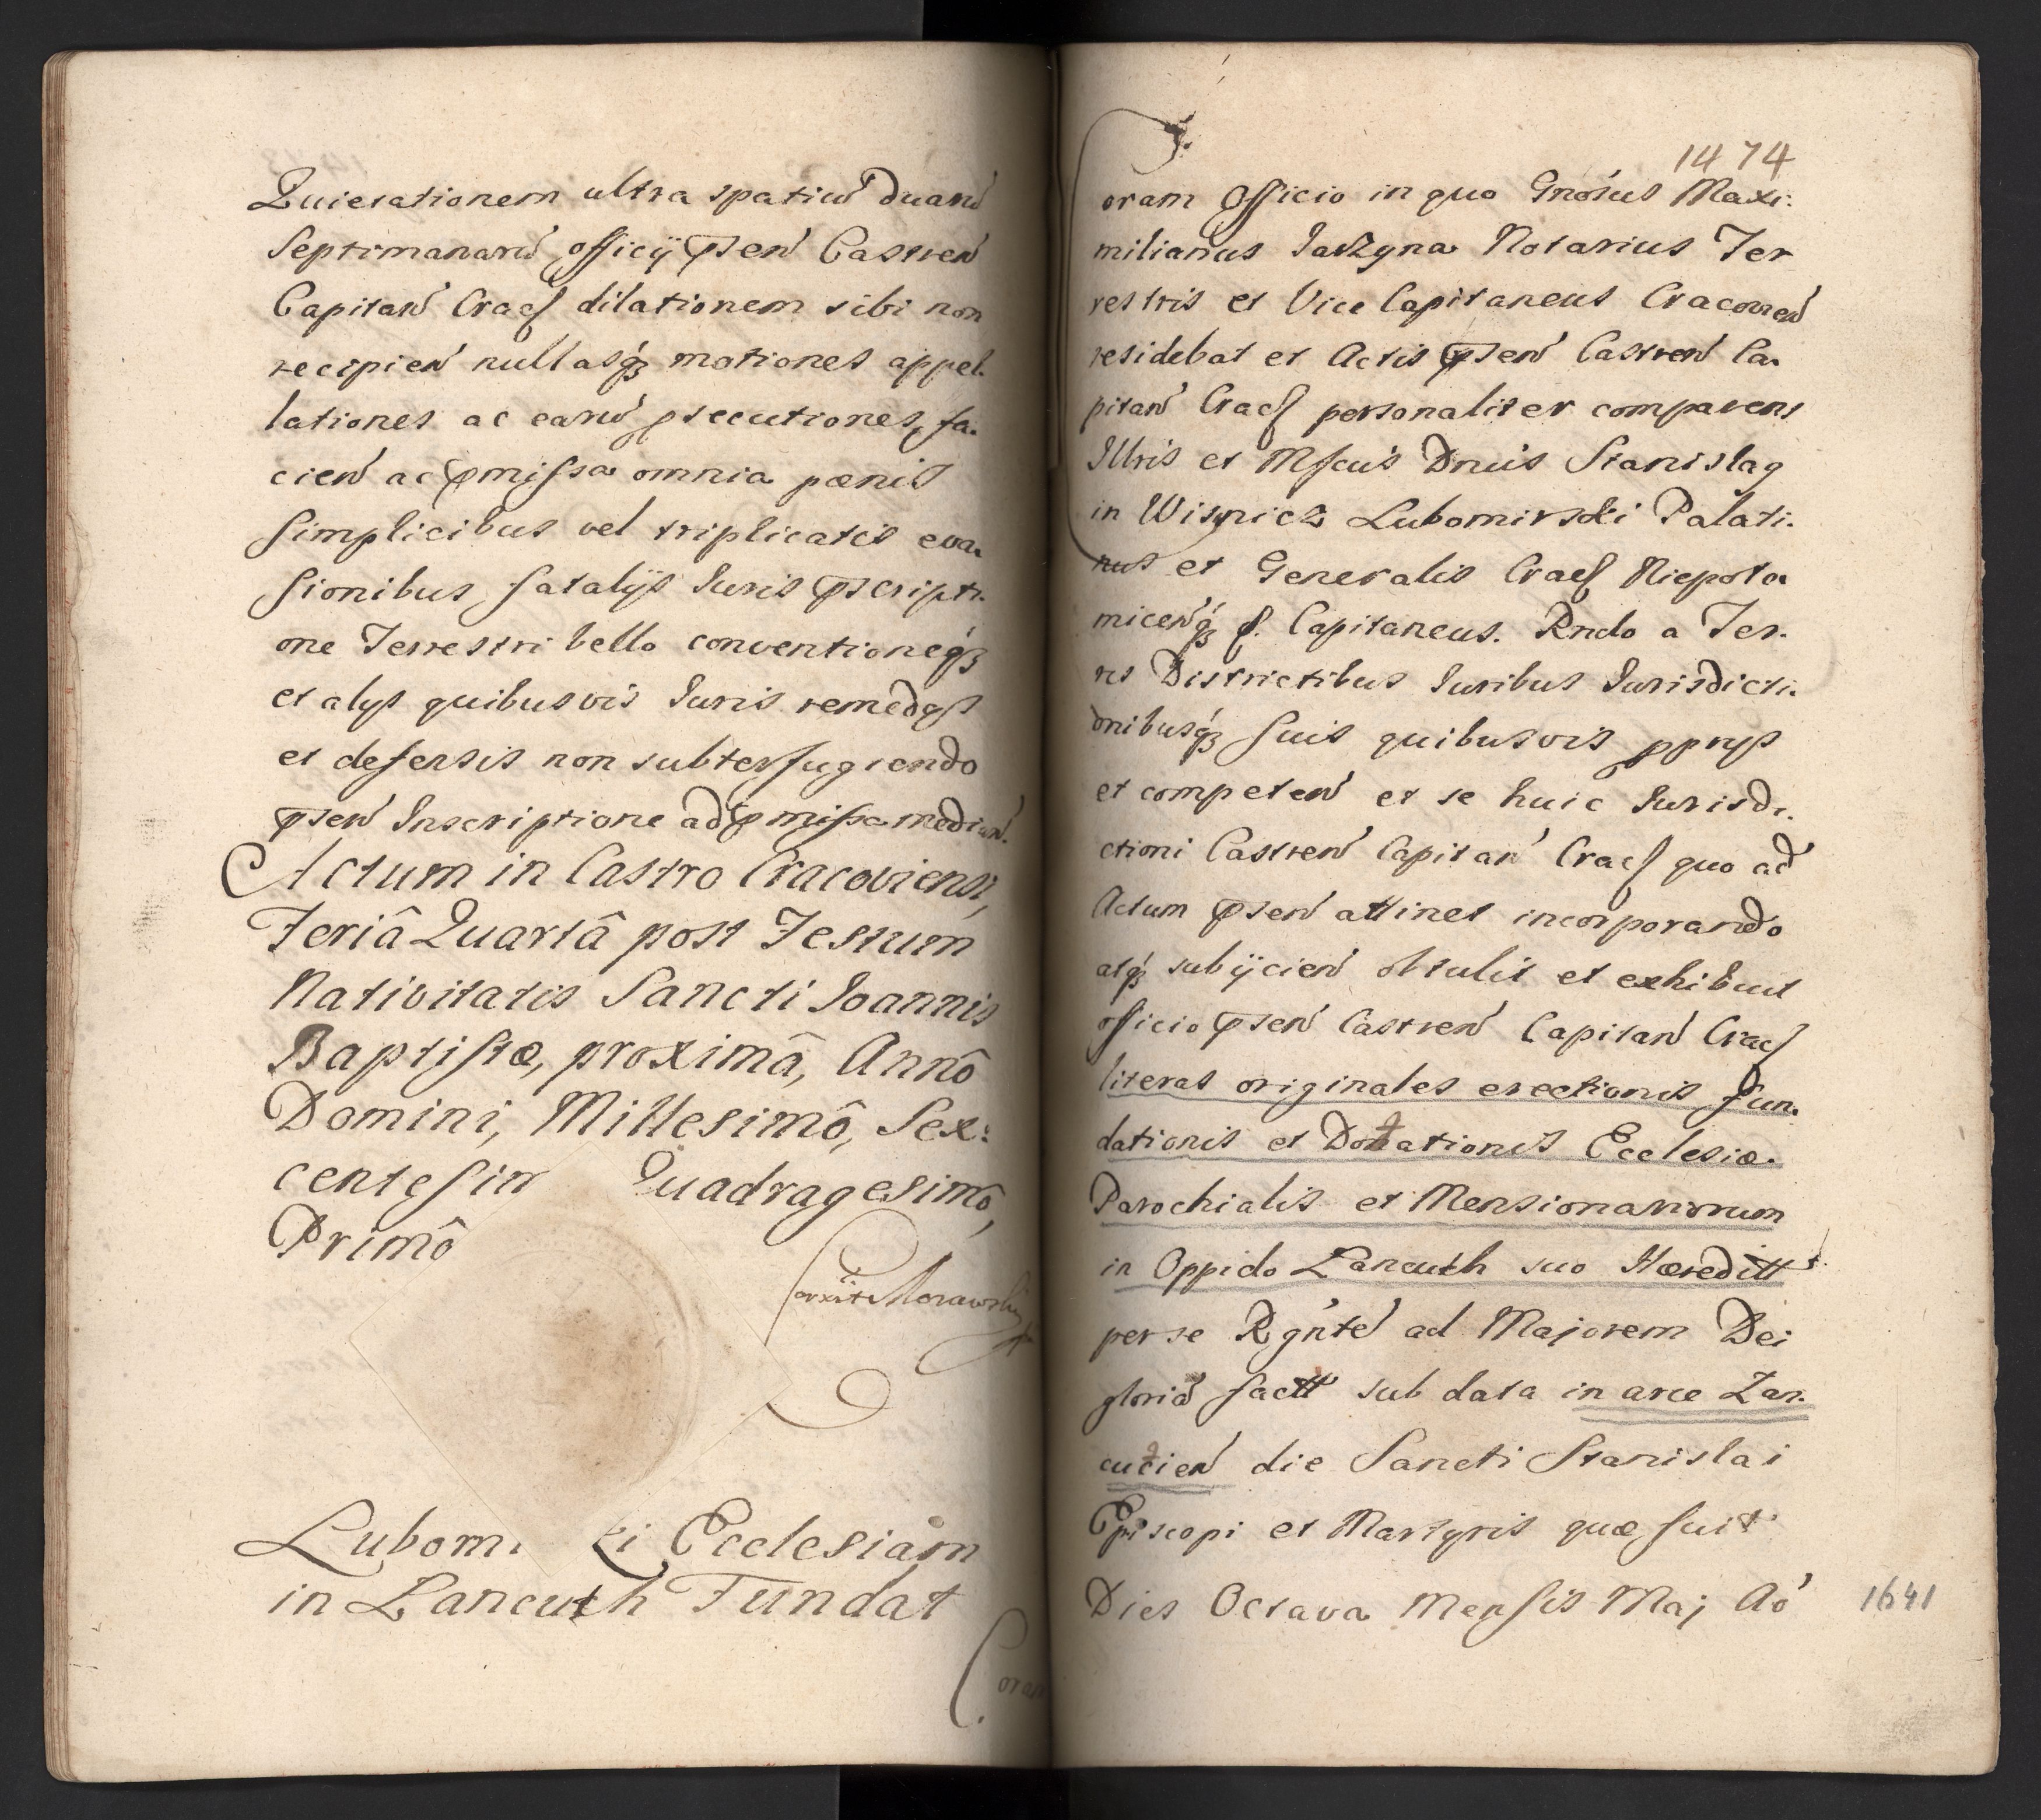 Quietationem ultra spatiu͂ duaru͂
Septimanaru͂ officÿ p̄sen͂ Castren͂
Capitan͂ Cracſ dilationem sibi non
recipien͂ nullasq́ꝫ motiones appel-
lationes ac earu͂ ꝓsecutiones fa-
cien͂ ac p̄mißa omnia pænis
Simplicibus vel triplicatis eva-
sionibus fatalÿs Iuris p̄scripti-
one Terrestri bello conventioneq́ꝫ
et alÿs quibusvis Iuris remedÿs
et defensis non subterfugiendo
p̄sen͂ Inscriptione ad p̄mißa median͂.
Actum in Castro Cracoviensi,
Feriâ Quartâ post Festum
Nativitatis Sancti Ioannis
Baptistæ, proximâ, Annô
Domini, Millesimô, Sex:
centesim Quadragesimô,
Primô
Corrêxit Morawski
Lubom ki Ecclesiam
in Lancuth Fundat
Coram
1474
oram Officio in quo Gnósus Maxi:
milianus Iarzyna Notarius Ter
restris et Vice Capitaneus Cracovien͂
residebat et Actis p̄sen͂ Castren͂ Ca-
pitan͂ Cracſ personaliter comparens
Illris et Mfcus Dnus Stanislaꝯ
in Wisnicz Lubomirski Palati-
nus et Generalis Cracſ Niepoło
micen͂q́ꝫ p. Capitaneus. Rndo a Ter-
ris Districtibus Iuribus Iurisdicti-
onibusq́ꝫ suis quibusvis pprÿs
et competen͂ et se huic Iurisdi-
ctioni Castren͂ Capitan͂ Cracſ quo ad
Actum p̄sen͂ attinet incorporando
atq́ꝫ subÿcien͂ obtulit et exhibuit
officio p̄sen͂ Castren͂ Capitan͂ Cracſ
literas originales erectionis fun-
dationis et Dotationis Ecclesiæ
Parochialis et Mensionariorum
in Oppido Lancuth suo Hæreditt
per se Rgńte͂ ad Majorem Dei
gloria͂ factt sub data in arce Lan-
cucien͂ die Sancti Stanislai
Episcopi et Martyris quæ fuit
Dies Octava Mensis Maj Aó 1641